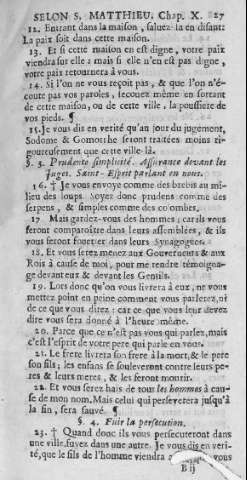 SELON S. MATTHIEU. Chap. X. 27
12. Entrant dans la maison, saluez-la en disant:
La paix soit dans cette maison.
13. Et si cette maison en est digne, votre paix
viendra sur elle: mais si elle n'en est pas digne,
votre paix retournera à vous.
14. Si l'on ne vous reçoit pas, & que l'on n'é-
coute pas vos paroles, secouez même en sortant
de cette maison, ou de cette ville, la poussiere de
vos pieds. ¶
15. Je vous dis en verité qu'au jour du jugement,
Sodome & Gomorrhe seront traitées moins ri-
goureusement que cette ville-là.
§. 3. Prudente simplicité. Assurance devant les
Juges. Saint-Esprit parlant en nous.
16. † Je vous envoye comme des brebis au mi-
lieu des loups. Soyez donc prudens comme des
serpens, & simples comme des colombes.
17 Mais gardez-vous des hommes; car ils vous
feront comparoître dans leurs assemblées, & ils
vous feront fouetter dans leurs Synagogues.
18. Et vous serez menez aux Gouverneurs & aux
Rois à cause de moi, pour me rendre témoigna-
ge devant eux & devant les Gentils.
19. Lors donc qu'on vous livrera à eux, ne vous
mettez point en peine comment vous parlerez, ni
de ce que vous direz: car ce que vous leur devez
dire vous sera donné à l'heure même.
20. Parce que ce n'est pas vous qui parlez, mais
c'est l'esprit de votre pere qui parle en vous.
21. Le frere livrera son frere à la mort, & le pere
son fils; les enfans se souleveront contre leurs pe-
res & leurs meres, & les feront mourir.
22. Et vous serez haïs de tous les hommes à cau-
se de mon nom, Mais celui qui perseverera jusqu'à
la fin, sera sauvé. ¶
§. 4. Fuir la persecution.
23. † Quand donc ils vous persecuteront dans
une ville, fuyez dans une autre. Je vous dis en veri-
té, que le fils de l'homme viendra
B ij